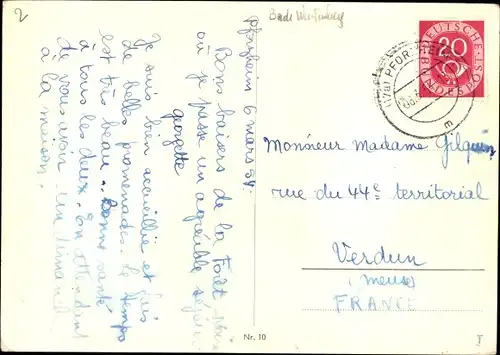 2
Baden Württemberg
Pforzheim 6 mars 54.
Bons baisers de la Forêt Noire
où je passe un agréable séjour
georgette
Je suis bien accueillie et fais
de belles promenades. Le temps
est très beau. Bonne santé
à tous les deux. En attendant
de vous voir un dimanche
à la maison.
DEUTSCHE
BUNDESPOST
20
(17a) PFORZHEIM
m
Monsieur Madame Gilquin
rue du 44e territorial
Verdun
(meuse)
FRANCE
Nr. 10